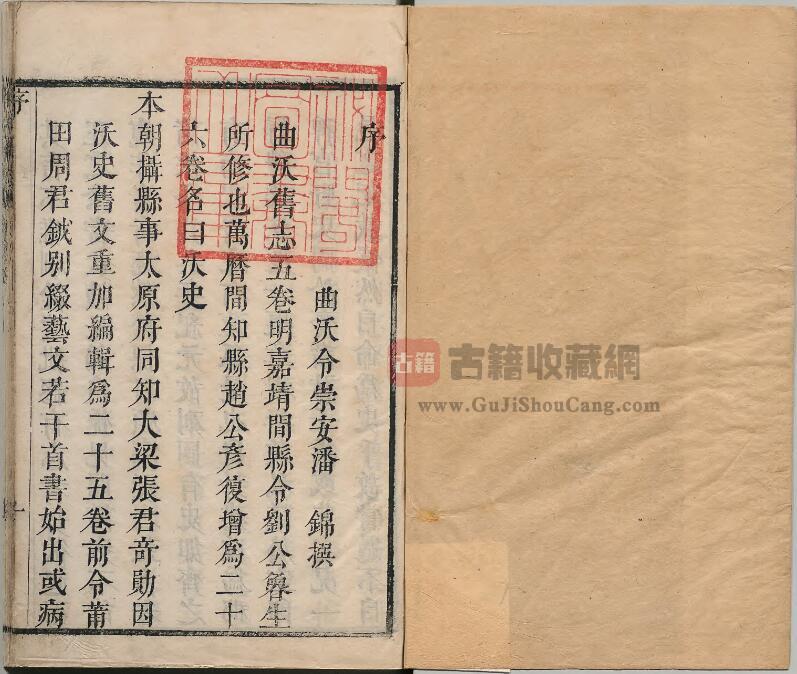 序
曲沃令崇安潘 錦撰
曲沃舊志五卷明嘉靖間縣令劉公魯生
所修也萬曆間知縣趙公彥復增爲二十
六卷名曰沃史
本朝攝縣事太原府同知大梁張君奇勛因
沃史舊文重加編輯爲二十五卷前令莆
田周君鉞别綴藝文若干首書始出或病
序
一
古籍
古籍收藏網
www.GuJiShouCang.com